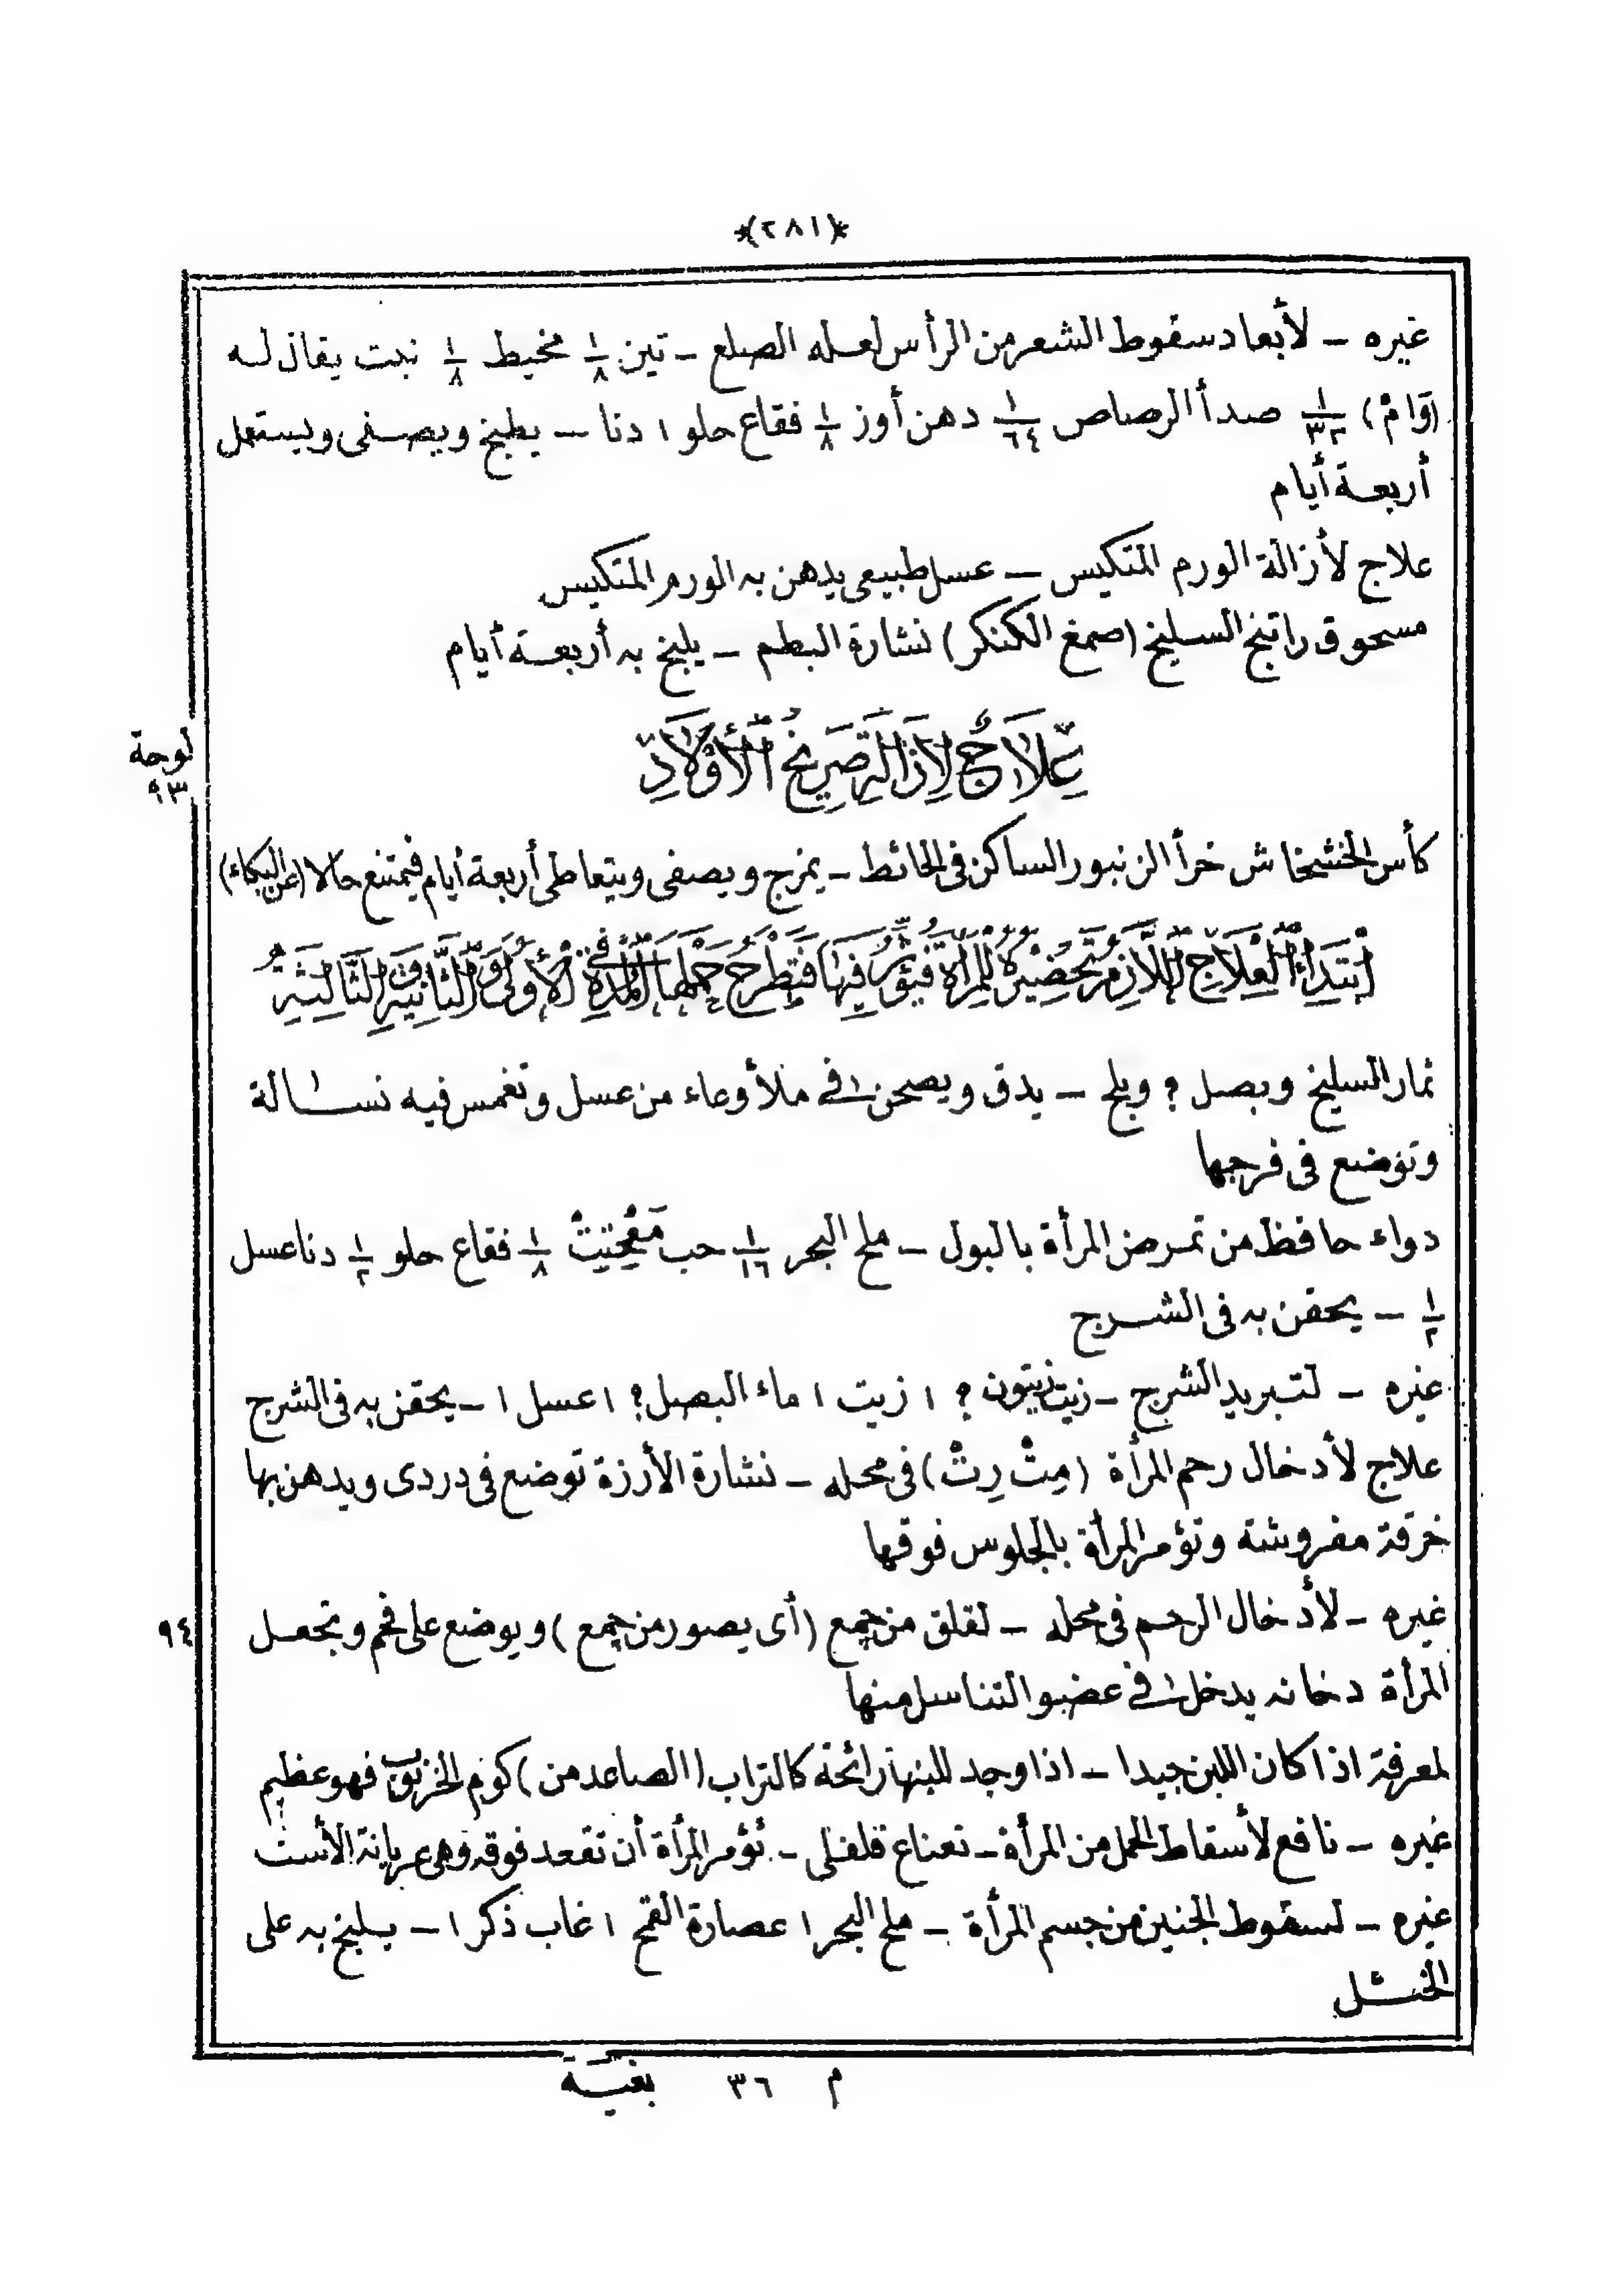 *(٢٨١)*
غيره ـ لأبعاد سقوط الشعر من الرأس لعله الصلع ـ تين ١/٨ مخيط ١/٨ نبت يقال له
(وَامْ) ١/٣٢ صدأ الرصاص ١/٦٤ دهن أوز ١/٨ فقاع حلو ١ دنا ـ يطبخ ويصفى ويستعمل
أربعة أيام
علاج لأزالة الورم المتكيس ـ عسل طبيعى يدهن به الورم المتكيس
مسحوق راتنج السليخ (صمغ الكنكر) نشارة البطم ـ يلبخ به أربعة أيام
عِلَاجٌ لِإِزَالَةِ صَرِيخُ الْأَوْلَادِ
لوحة
٩٣
كأس الخشخاش خرأ الزنبور الساكن فى الحائط ـ يمزج ويصفى ويتعاطى أربعة أيام فيمتنع حالا (عن البكاء)
اُبْتَدَاءُ الْعِلَاجِ اللَّازِمُ تَحْضِيْرُهُ لِلْمَرْأَةِ فَيُؤَثِّرُ فِيْهَا فَتَطْرَحُ حَمْلَهَا الْمُدَّةِ فِي الْأُولَى وَالثَّانِيَةِ وَالثَّالِثَةِ
ثمار السليخ وبصل ؟ وبلح ـ يدق ويصحن فى ملأ وعاء من عسل وتغمس فيه نسالة
وتوضع فى فرجها
دواء حافظ من تمرض المرأة بالبول ـ ملح البحر ١/١٦ حب مَفْحِتِيتْ ١/٨ فقاع حلو ١/٢ دنا عسل
١/٢ ـ يحقن به فى الشرج
غيره ـ لتبريد الشرج ـ زيت زيتون ؟ ١ زيت ١ ماء البصل ؟ ١ عسل ١ ـ يحقن به فى الشرج
علاج لأدخال رحم المرأة (مِثْ رِثْ) فى محله ـ نشارة الأرزة توضع فى دردى ويدهن بها
خرقة مفروشة وتؤمر المرأة بالجلوس فوقها
٩٤
غيره ـ لأدخال الرحم فى محله ـ لقلق من جمع (أى يصور من جمع) ويوضع على فحم وتجعل
المرأة دخانه يدخل فى عضو التناسل منها
لمعرفة اذا كان اللبن جيدا ـ اذا وجد للبنها رائحة كالتراب (الصاعد من) كوم الخرنوب فهو عظيم
غيره ـ نافع لأسقاط الحمل من المرأة ـ نعناع فلفلى ـ تؤمر المرأة أن تقعد فوقه وهى عريانة الأست
غيره ـ لسقوط الجنين من جسم المرأة ـ ملح البحر ١ عصارة القمح ١ غاب ذكر ١ ـ يلبخ به على
الخثل
م ٣٦ بغية